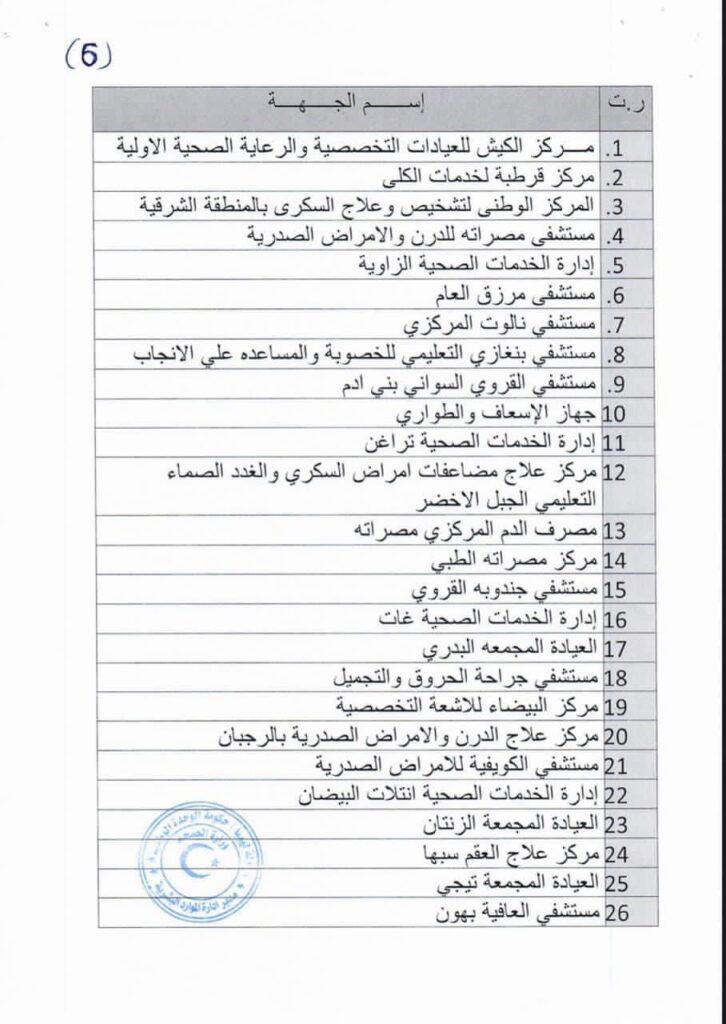 (6)
ر.ت إســـم الجـــهـــة
1. مـــركز الكيش للعيادات التخصصية والرعاية الصحية الاولية
2. مركز قرطبة لخدمات الكلى
3. المركز الوطنى لتشخيص وعلاج السكرى بالمنطقة الشرقية
4. مستشفى مصراته للدرن والامراض الصدرية
5. إدارة الخدمات الصحية الزاوية
6. مستشفى مرزق العام
7. مستشفي نالوت المركزي
8. مستشفي بنغازي التعليمي للخصوبة والمساعده علي الانجاب
9. مستشفي القروي السواني بني ادم
10 جهاز الإسعاف والطواري
11 إدارة الخدمات الصحية تراغن
12 مركز علاج مضاعفات امراض السكري والغدد الصماء
التعليمي الجبل الاخضر
13 مصرف الدم المركزي مصراته
14 مركز مصراته الطبي
15 مستشفي جندوبه القروي
16 إدارة الخدمات الصحية غات
17 العيادة المجمعه البدري
18 مستشفي جراحة الحروق والتجميل
19 مركز البيضاء للاشعة التخصصية
20 مركز علاج الدرن والامراض الصدرية بالرجبان
21 مستشفي الكويفية للامراض الصدرية
22 إدارة الخدمات الصحية انتلات البيضان
23 العيادة المجمعة الزنتان
24 مركز علاج العقم سبها
25 العيادة المجمعة تيجي
26 مستشفي العافية بهون
حكومة الوحدة الوطنية
وزارة الصحة
مدير ادارة الموارد البشرية